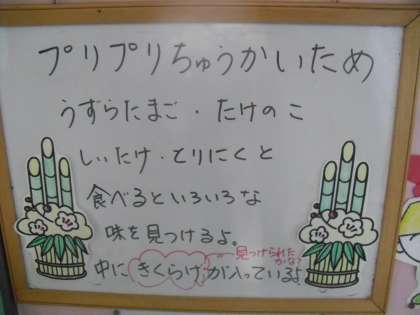 プリプリちゅうかいため
うずらたまご・たけのこ
しいたけ・とりにくと
食べるといろいろな
味を見つけるよ。
見つけられた
かな？
中にきくらげが入っているよ